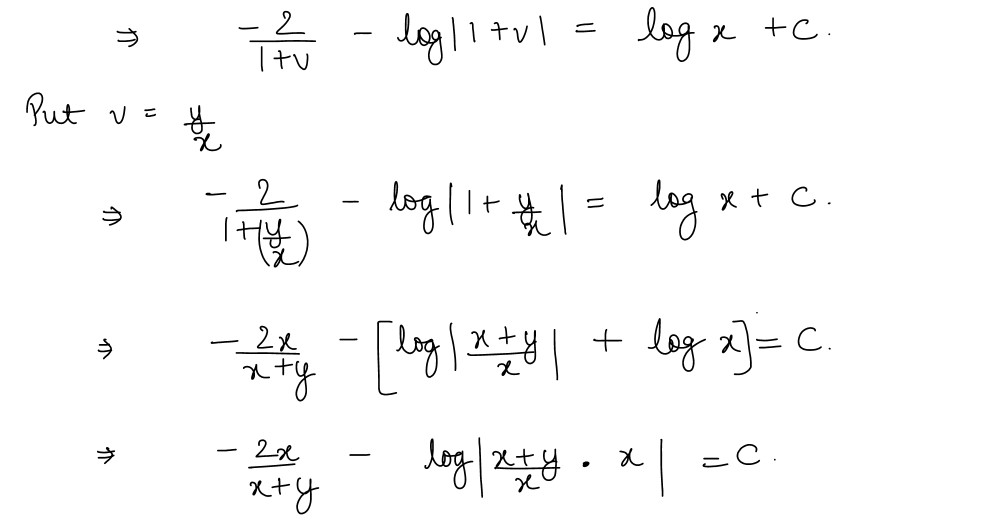 ⇒ -2/(1+v) - log|1+v| = log x + C.
Put v = y/x
⇒ -2/(1+(y/x)) - log|1+ y/x| = log x + C.
⇒ -2x/(x+y) - [log|(x+y)/x| + log x] = C.
⇒ -2x/(x+y) - log|(x+y)/x · x| = C.